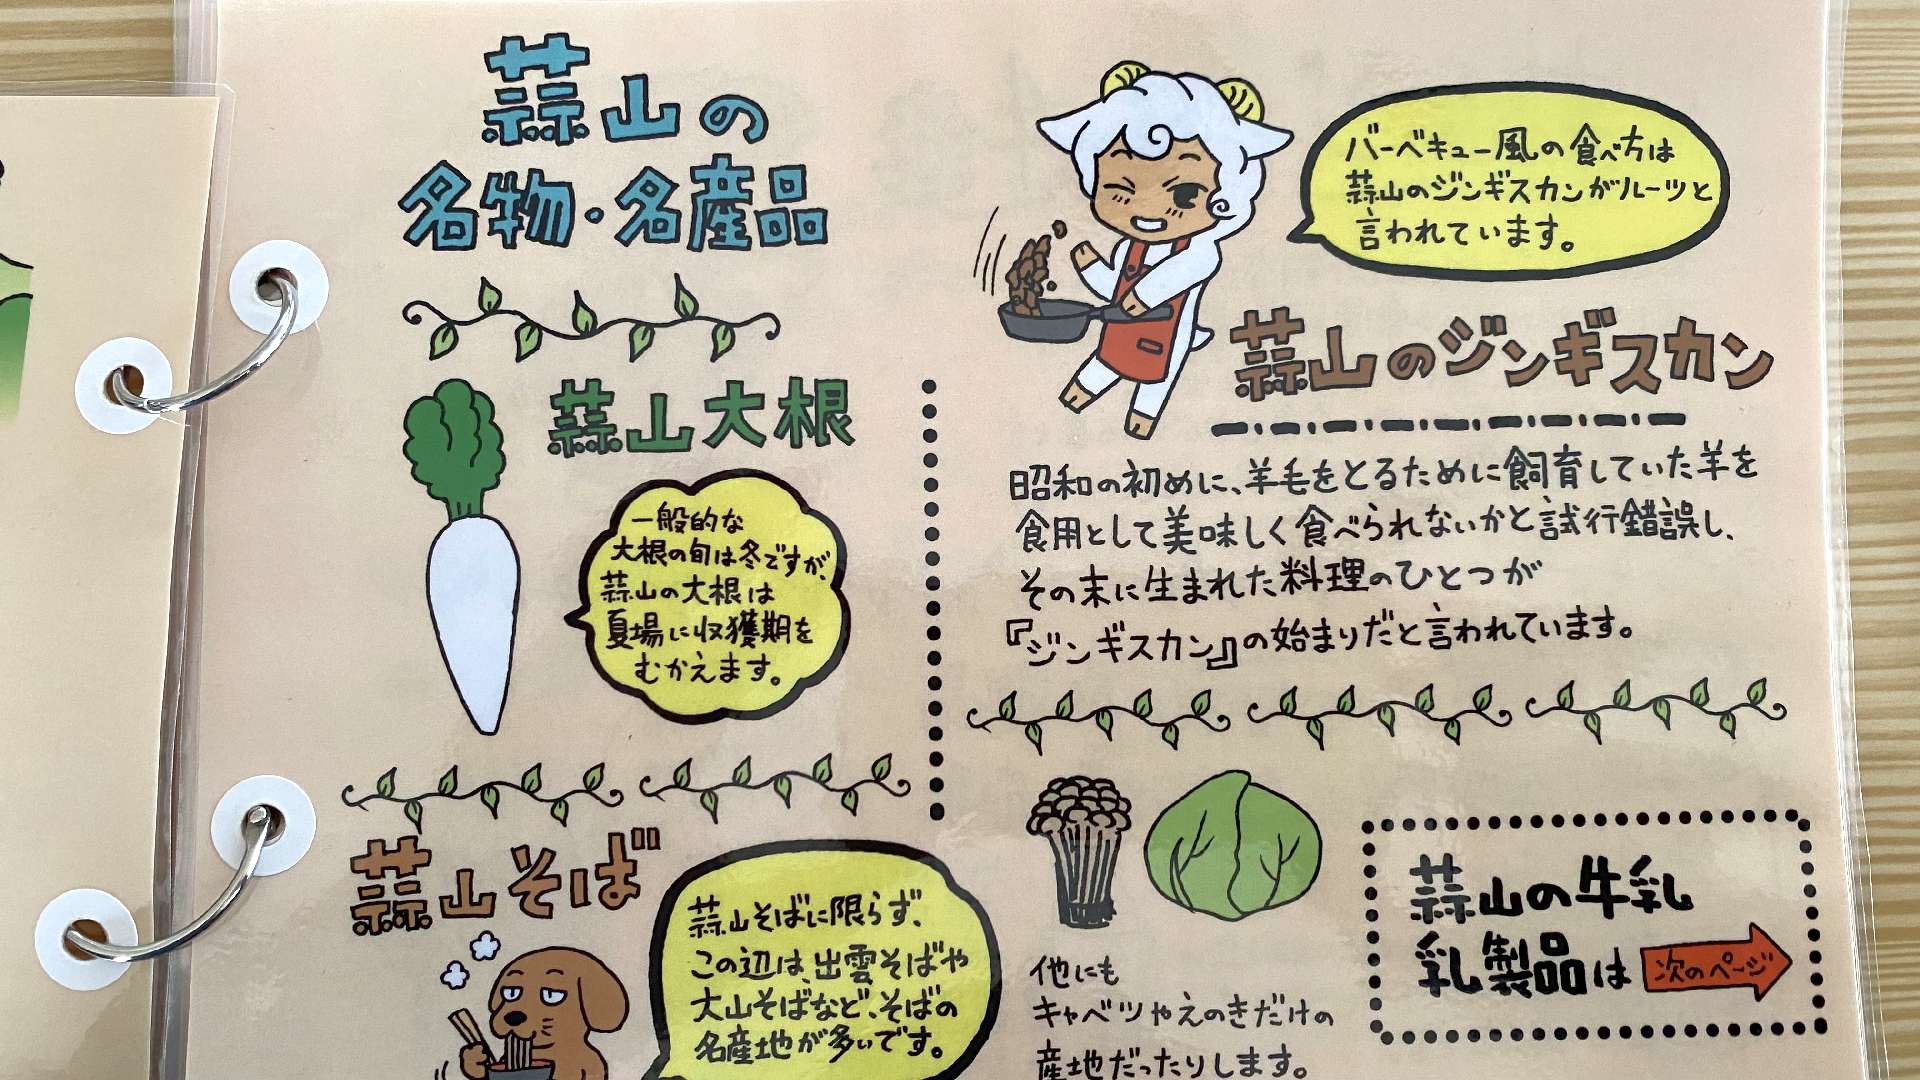 蒜山の
名物・名産品
蒜山大根
一般的な
大根の旬は冬ですが、
蒜山の大根は
夏場に収獲期を
むかえます。
蒜山そば
蒜山そばに限らず、
この辺は、出雲そばや
大山そばなど、そばの
名産地が多いです。
バーベキュー風の食べ方は
蒜山のジンギスカンがルーツと
言われています。
蒜山のジンギスカン
昭和の初めに、羊毛をとるために飼育していた羊を
食用として美味しく食べられないかと試行錯誤し、
その末に生まれた料理のひとつが
『ジンギスカン』の始まりだと言われています。
他にも
キャベツやえのきだけの
産地だったりします。
蒜山の牛乳
乳製品は
次のページ